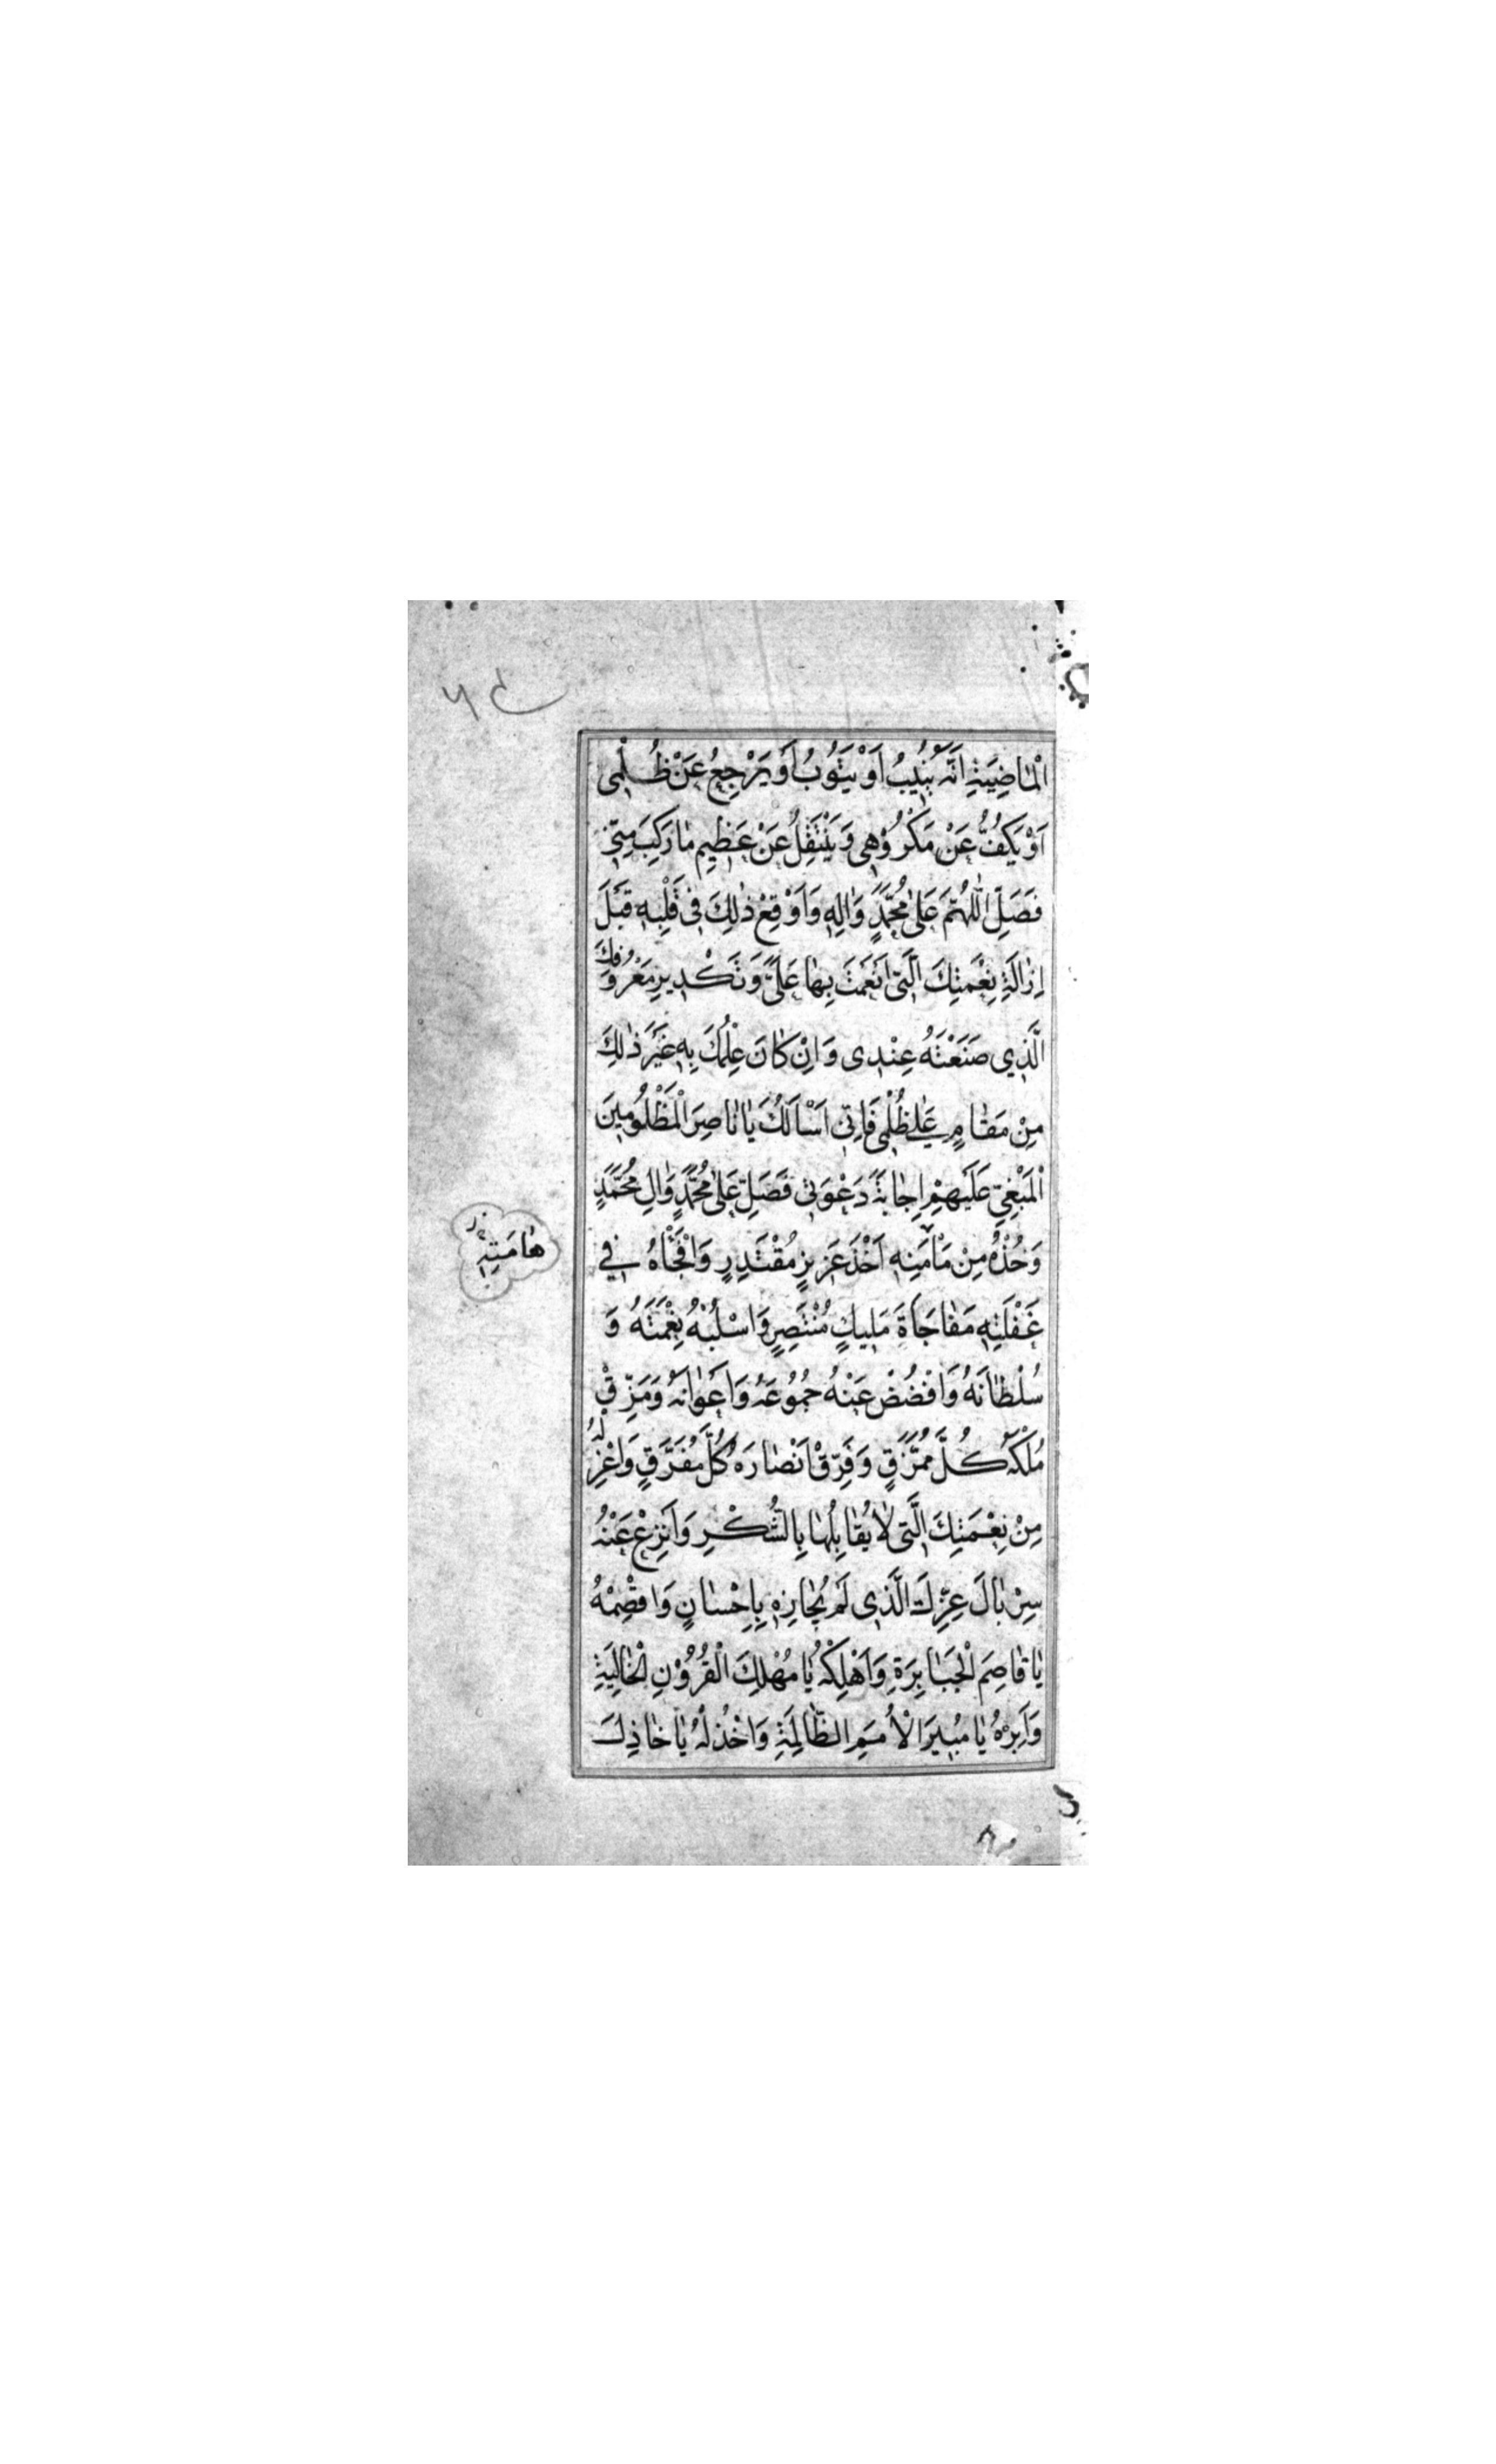 الْمٰاضِيَةِ اَنَّهُ يُنٖيبُ اَوْ يَتُوبُ اَوْ يَرْجِعُ عَنْ ظُلْمٖى
اَوْ يَكُفُّ عَنْ مَكْرُوْهٖى وَ يَنْتَقِلُ عَنْ عَظٖيمِ مٰا رَكِبَ مِنّٖى
فَصَلِّ اللّٰهُمَّ عَلٰى مُحَمَّدٍ وَ اٰلِهٖ وَ اَوْقِعْ ذٰلِكَ فٖى قَلْبِهٖ قَبْلَ
اِزٰالَةِ نِعْمَتِكَ الَّتٖى اَنْعَمْتَ بِهٰا عَلَىَّ وَ تَكْدٖيرِ مَعْرُوفِكَ
الَّذٖي صَنَعْتَهُ عِنْدٖى وَ اِنْ كٰانَ عِلْمُكَ بِهٖ غَيْرَ ذٰلِكَ
مِنْ مَقٰامٍ عَلٰى ظُلْمٖى فَاِنّٖى اَسْاَلُكَ يٰا نٰاصِرَ الْمَظْلُومٖينَ
الْمَبْغِىِّ عَلَيْهِمْ اِجٰابَةَ دَعْوَتٖى فَصَلِّ عَلٰى مُحَمَّدٍ وَ اٰلِ مُحَمَّدٍ
وَ خُذْهُ مِنْ مَاْمَنِهٖ اَخْذَ عَزٖيزٍ مُقْتَدِرٍ وَ افْجَاْهُ فٖي
غَفْلَتِهٖ مَفٰاجَاةَ مَلٖيكٍ مُنْتَصِرٍ وَ اسْلُبْهُ نِعْمَتَهُ وَ
سُلْطٰانَهُ وَ افْضُضْ عَنْهُ جُمُوعَهُ وَ اَعْوٰانَهُ وَ مَزِّقْ
مُلْكَهُ كُلَّ مُمَزَّقٍ وَ فَرِّقْ اَنْصٰارَهُ كُلَّ مُفَرَّقٍ وَ اعْزِلْهُ
مِنْ نِعْمَتِكَ الَّتٖى لٰا يُقٰابِلُهٰا بِالشُّكْرِ وَ انْزِعْ عَنْهُ
سِرْبٰالَ عِزِّكَ الَّذٖى لَمْ يُجٰازِهٖ بِاِحْسٰانٍ وَ اقْصِمْهُ
يٰا قٰاصِمَ الْجَبٰابِرَةِ وَ اَهْلِكْهُ يٰا مُهْلِكَ الْقُرُوْنِ الْخٰالِيَةِ
وَ اَبِرْهُ يٰا مُبٖيرَ الْاُمَمِ الظّٰالِمَةِ وَ اخْذُلْهُ يٰا خٰاذِلَ
هٰامَتِهٖ